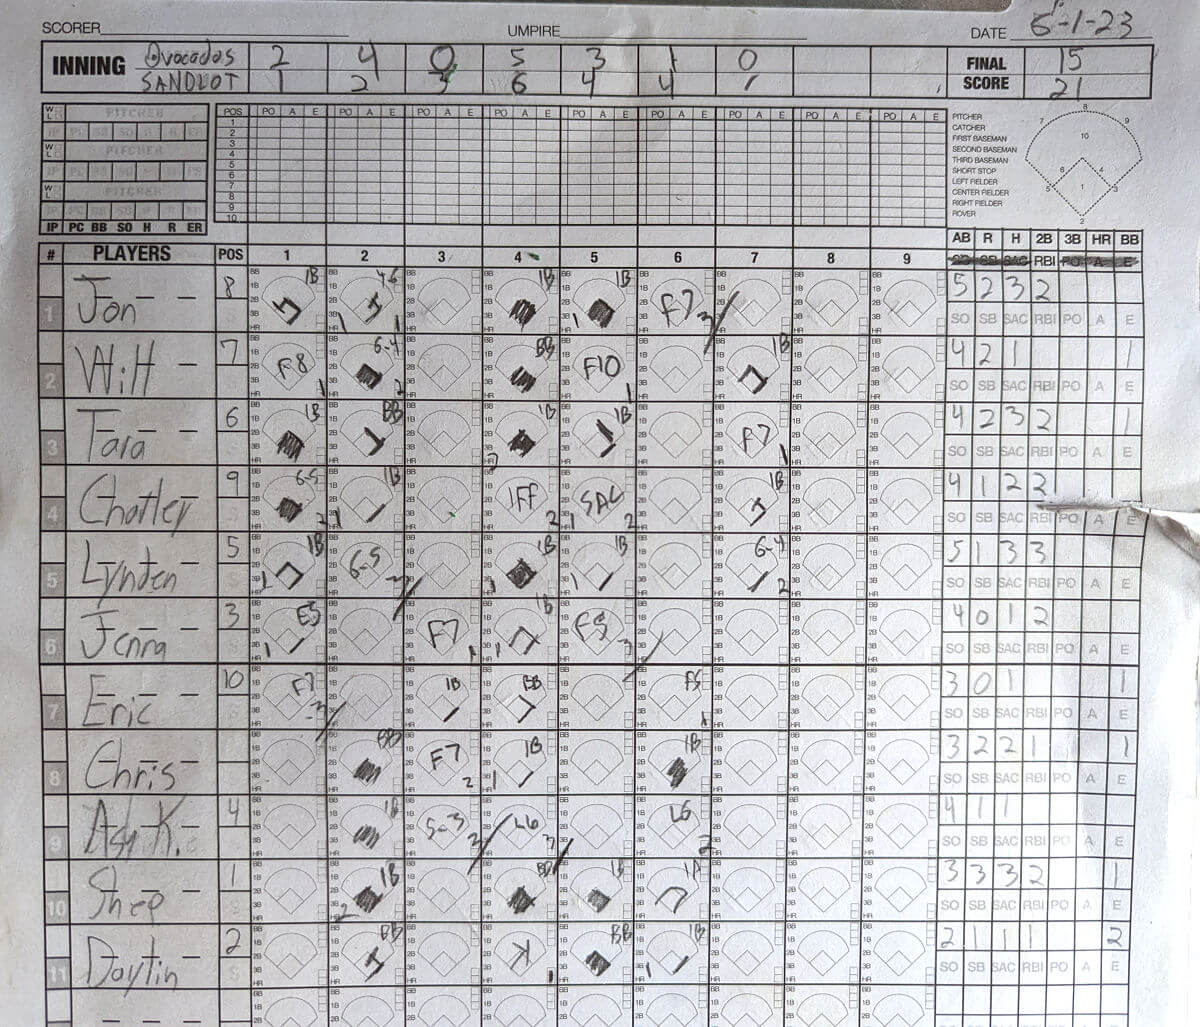 SCORER UMPIRE DATE 5-1-23
INNING Avocados 2 4 0 5 3 1 0 FINAL 15
SANDLOT 1 2 3 6 4 4 SCORE 21
W L PITCHER POS PO A E PO A E PO A E PO A E PO A E PO A E PO A E PO A E PO A E
1
2
3
4
5
6
7
8
9
10
IP PC BB SO H R ER
PITCHER
CATCHER
FIRST BASEMAN
SECOND BASEMAN
THIRD BASEMAN
SHORT STOP
LEFT FIELDER
CENTER FIELDER
RIGHT FIELDER
ROVER
AB R H 2B 3B HR BB
# PLAYERS POS 1 2 3 4 5 6 7 8 9
1 Jon 8 1B 4-6 1B 1B F7 5 2 3 2
SO SB SAC RBI PO A E
2 Will 7 F8 6-4 BB F10 1B 4 2 1 1
SO SB SAC RBI PO A E
3 Tara 6 1B BB 1B 1B F7 4 2 3 2 1
SO SB SAC RBI PO A E
4 Charley 9 6-5 1B IFF SAC 1B 4 1 2 2
SO SB SAC RBI PO A E
5 Lynden 5 1B 6-5 1B 1B 6-4 5 1 3 3
SO SB SAC RBI PO A E
6 Jenna 3 E5 F7 1B F8 4 0 1 2
SO SB SAC RBI PO A E
7 Eric 10 F7 1B BB F5 3 0 1 1
SO SB SAC RBI PO A E
8 Chris BB F7 1B 1B 3 2 2 1 1
SO SB SAC RBI PO A E
9 Ash K. 4 1B 5-3 L6 L6 4 1 1
SO SB SAC RBI PO A E
10 Shep 1 1B BB 1B 3 3 3 2 1
SO SB SAC RBI PO A E
11 Daytin 2 BB K BB 1B 2 1 1 1 2
SO SB SAC RBI PO A E